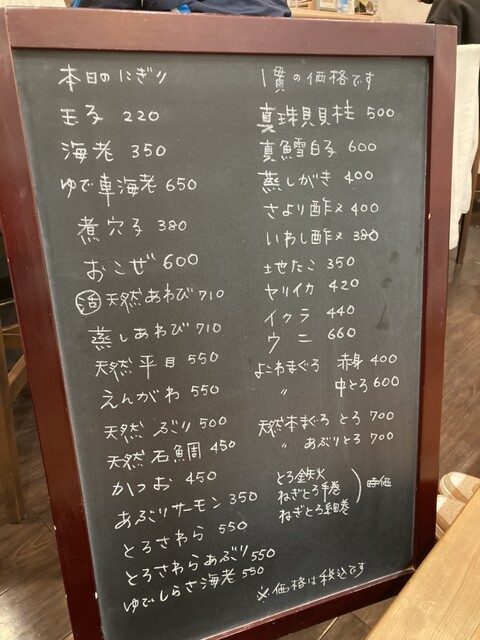 本日のにぎり
玉子 220
海老 350
ゆで車海老 650
煮穴子 380
おこぜ 600
活 天然あわび 710
蒸しあわび 710
天然平目 550
えんがわ 550
天然ぶり 500
天然石鯛 450
かつお 450
あぶりサーモン 350
とろさわら 550
とろさわらあぶり 550
ゆでしらさ海老 550
1貫の価格です
真珠貝貝柱 500
真鱈白子 600
蒸しがき 400
さより酢〆 400
いわし酢〆 380
地たこ 350
ヤリイカ 420
イクラ 440
ウニ 660
よこわまぐろ 赤身 400
〃 中とろ 600
天然本まぐろ とろ 700
〃 あぶりとろ 700
とろ鉄火
ねぎとろ手巻
ねぎとろ細巻
時価
※価格は税込です